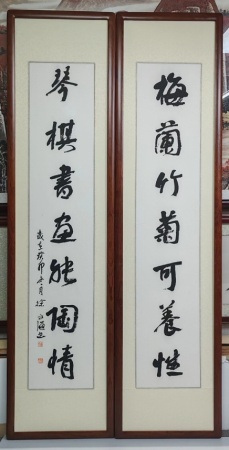 梅蘭竹菊可養性
琴棋書畫能陶情
歲在癸卯冬月